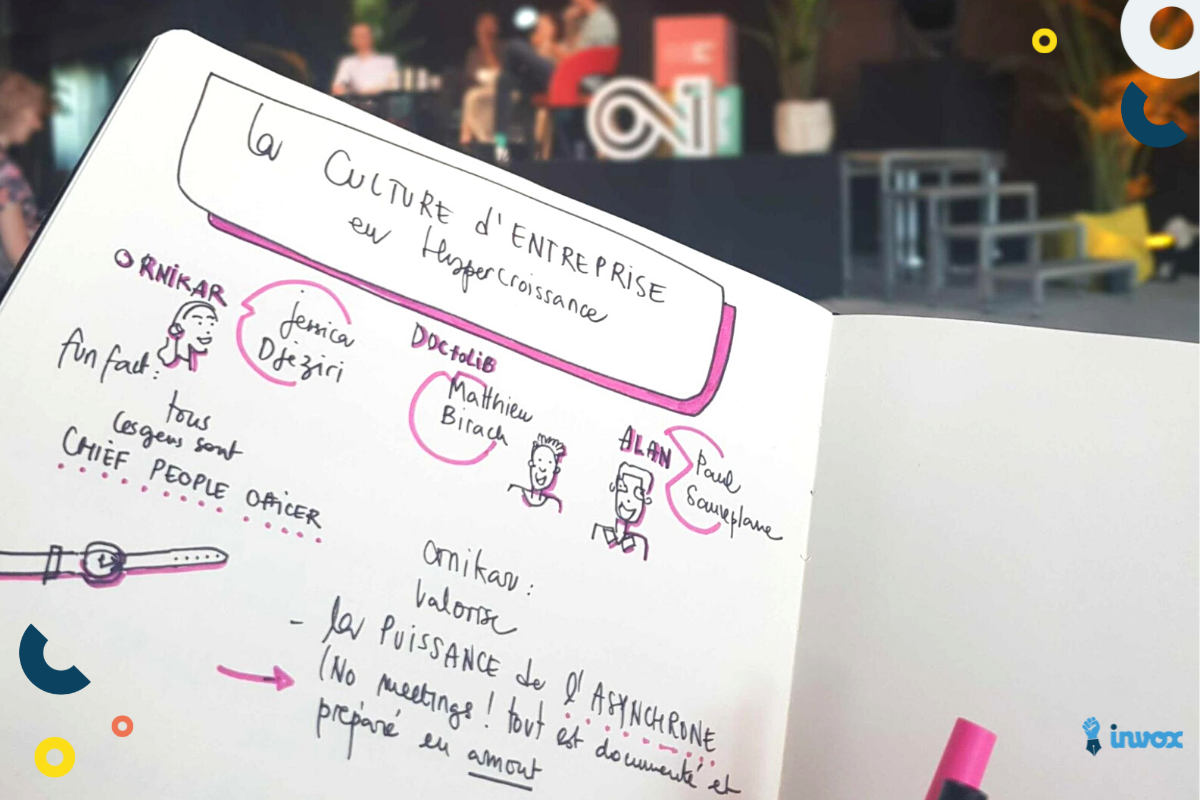 la CULTURE d'ENTREPRISE
en Hypercroissance
ORNIKAR
Jessica
Djeziri
fun fact:
tous
les gens sont
CHIEF PEOPLE OFFICER
DOCTOLIB
Matthieu
Birach
ALAN
Paul
Sauveplane
ornikar:
valorise
- la PUISSANCE de l'ASYNCHRONE
(No meetings! tout est documenté et
préparé en amont
invox